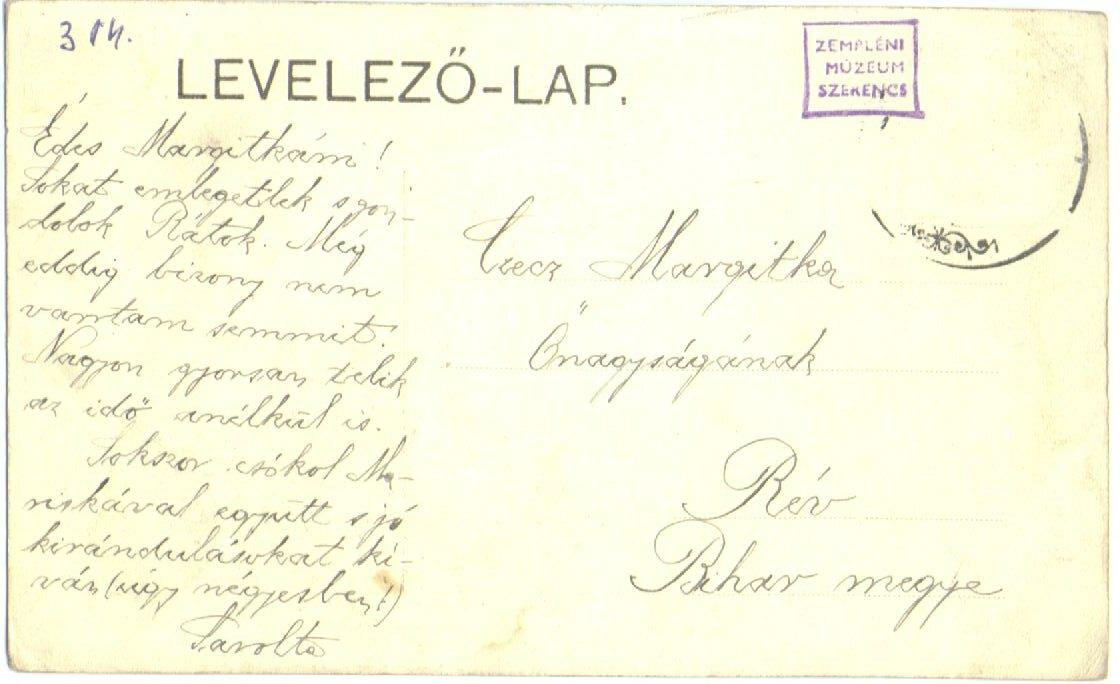 LEVELEZŐ-LAP.
ZEMPLÉNI
MÚZEUM
SZERENCS
Édes Margitkám!
Sokat emlegetlek s gon-
dolok Rátok. Még
eddig bizony nem
varrtam semmit.
Nagyon gyorsan telik
az idő anélkül is.
Sokszor csókol Ma-
riskával együtt s jó
kirándulásokat kí-
ván (úgy négyesben!)
Sarolta
Czecz Margitka
Őnagyságának
Rév
Bihar megye